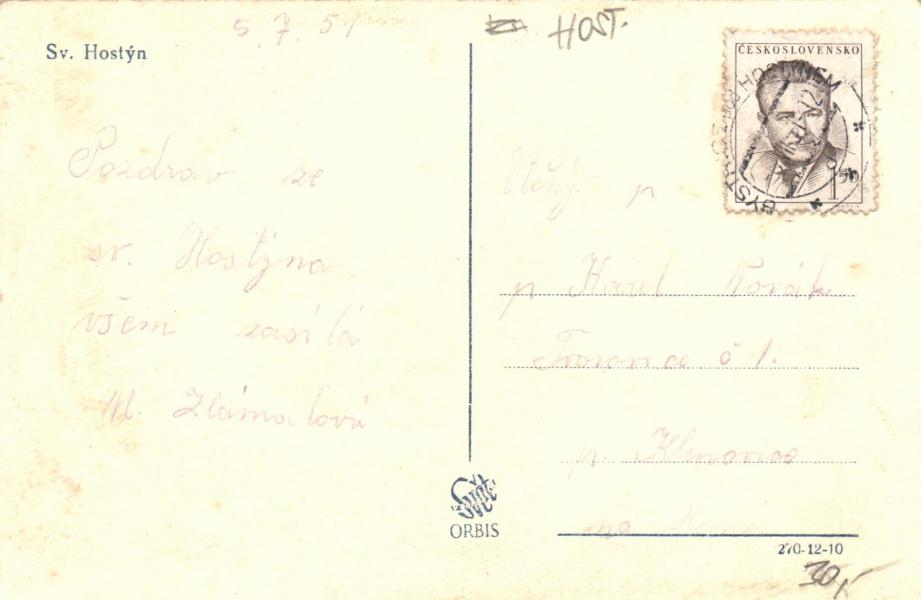 5. 7. 51
HOST.
Sv. Hostýn
ČESKOSLOVENSKO
BYSTŘICE pod HOSTÝNEM
1.50
Pozdrav ze
sv. Hostýna
všem zasílá
M. Zlámalová
Ctěný p
p Karel Novák
Tvorovice č 1.
p. Klenovice
na
ORBIS
270-12-10
30,-